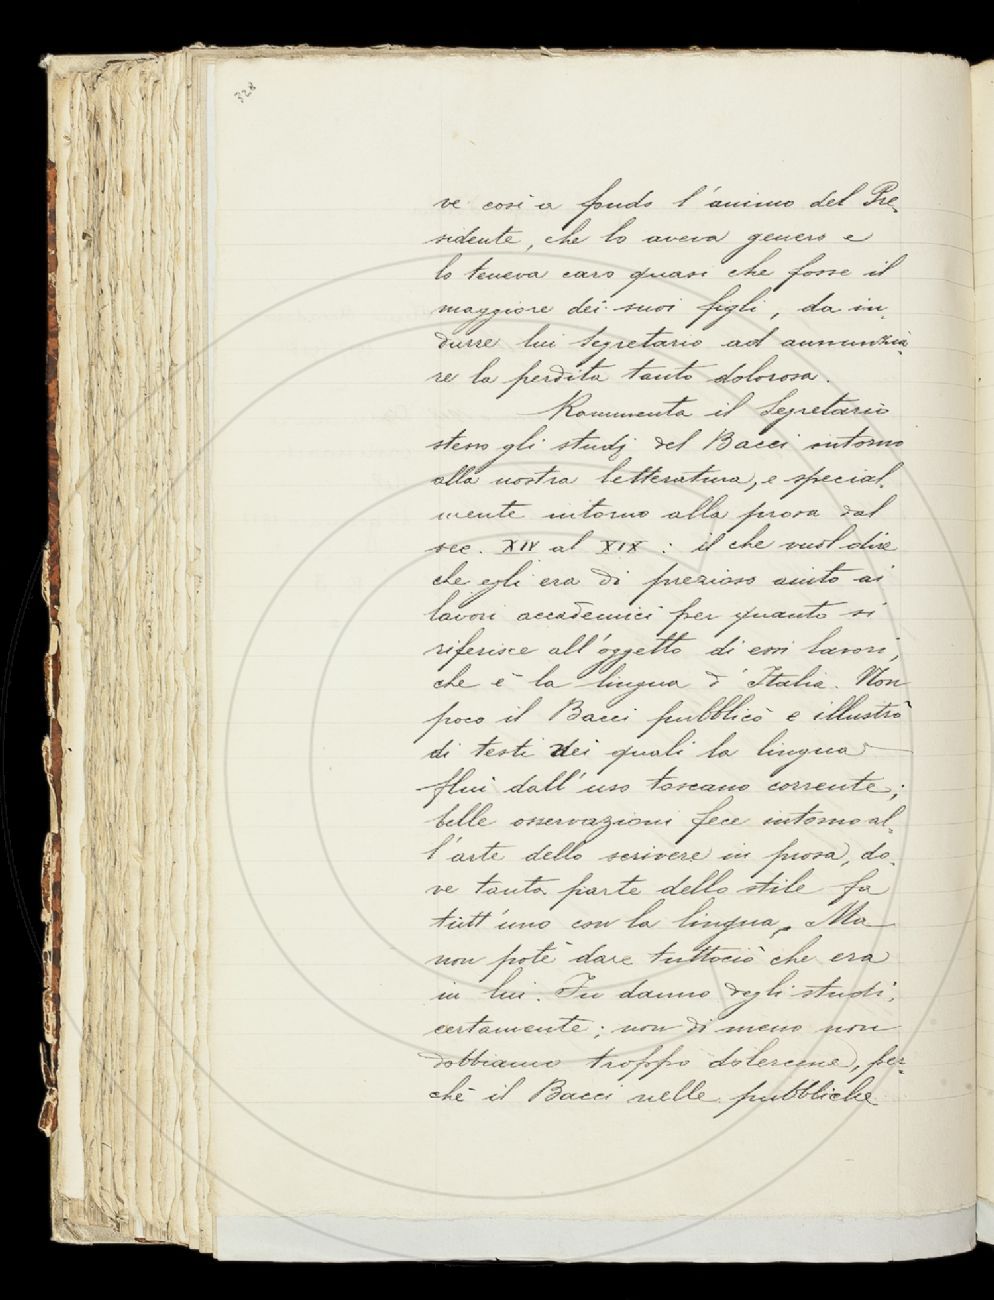 328
ve così a fondo l'animo del Pre-
sidente, che lo aveva genero e
lo teneva caro quasi che fosse il
maggiore dei suoi figli, da in-
durre lui Segretario ad annunzia-
re la perdita tanto dolorosa.
Rammenta il Segretario
stesso gli studj del Bacci intorno
alla nostra letteratura, e special-
mente intorno alla prosa dal
sec. XIV al XIX: il che vuol dire
che egli era di prezioso aiuto ai
lavori accademici per quanto si
riferisce all'oggetto di essi lavori,
che è la lingua d'Italia. Non
poco il Bacci pubblicò e illustrò
di testi dei quali la lingua
fluì dall'uso toscano corrente;
belle osservazioni fece intorno al-
l'arte dello scrivere in prosa, do-
ve tanta parte dello stile fa
tutt'uno con la lingua. Ma
non potè dare tuttociò che era
in lui. In danno degli studi,
certamente; non di meno non
dobbiamo troppo dolercene, per-
chè il Bacci nelle pubbliche